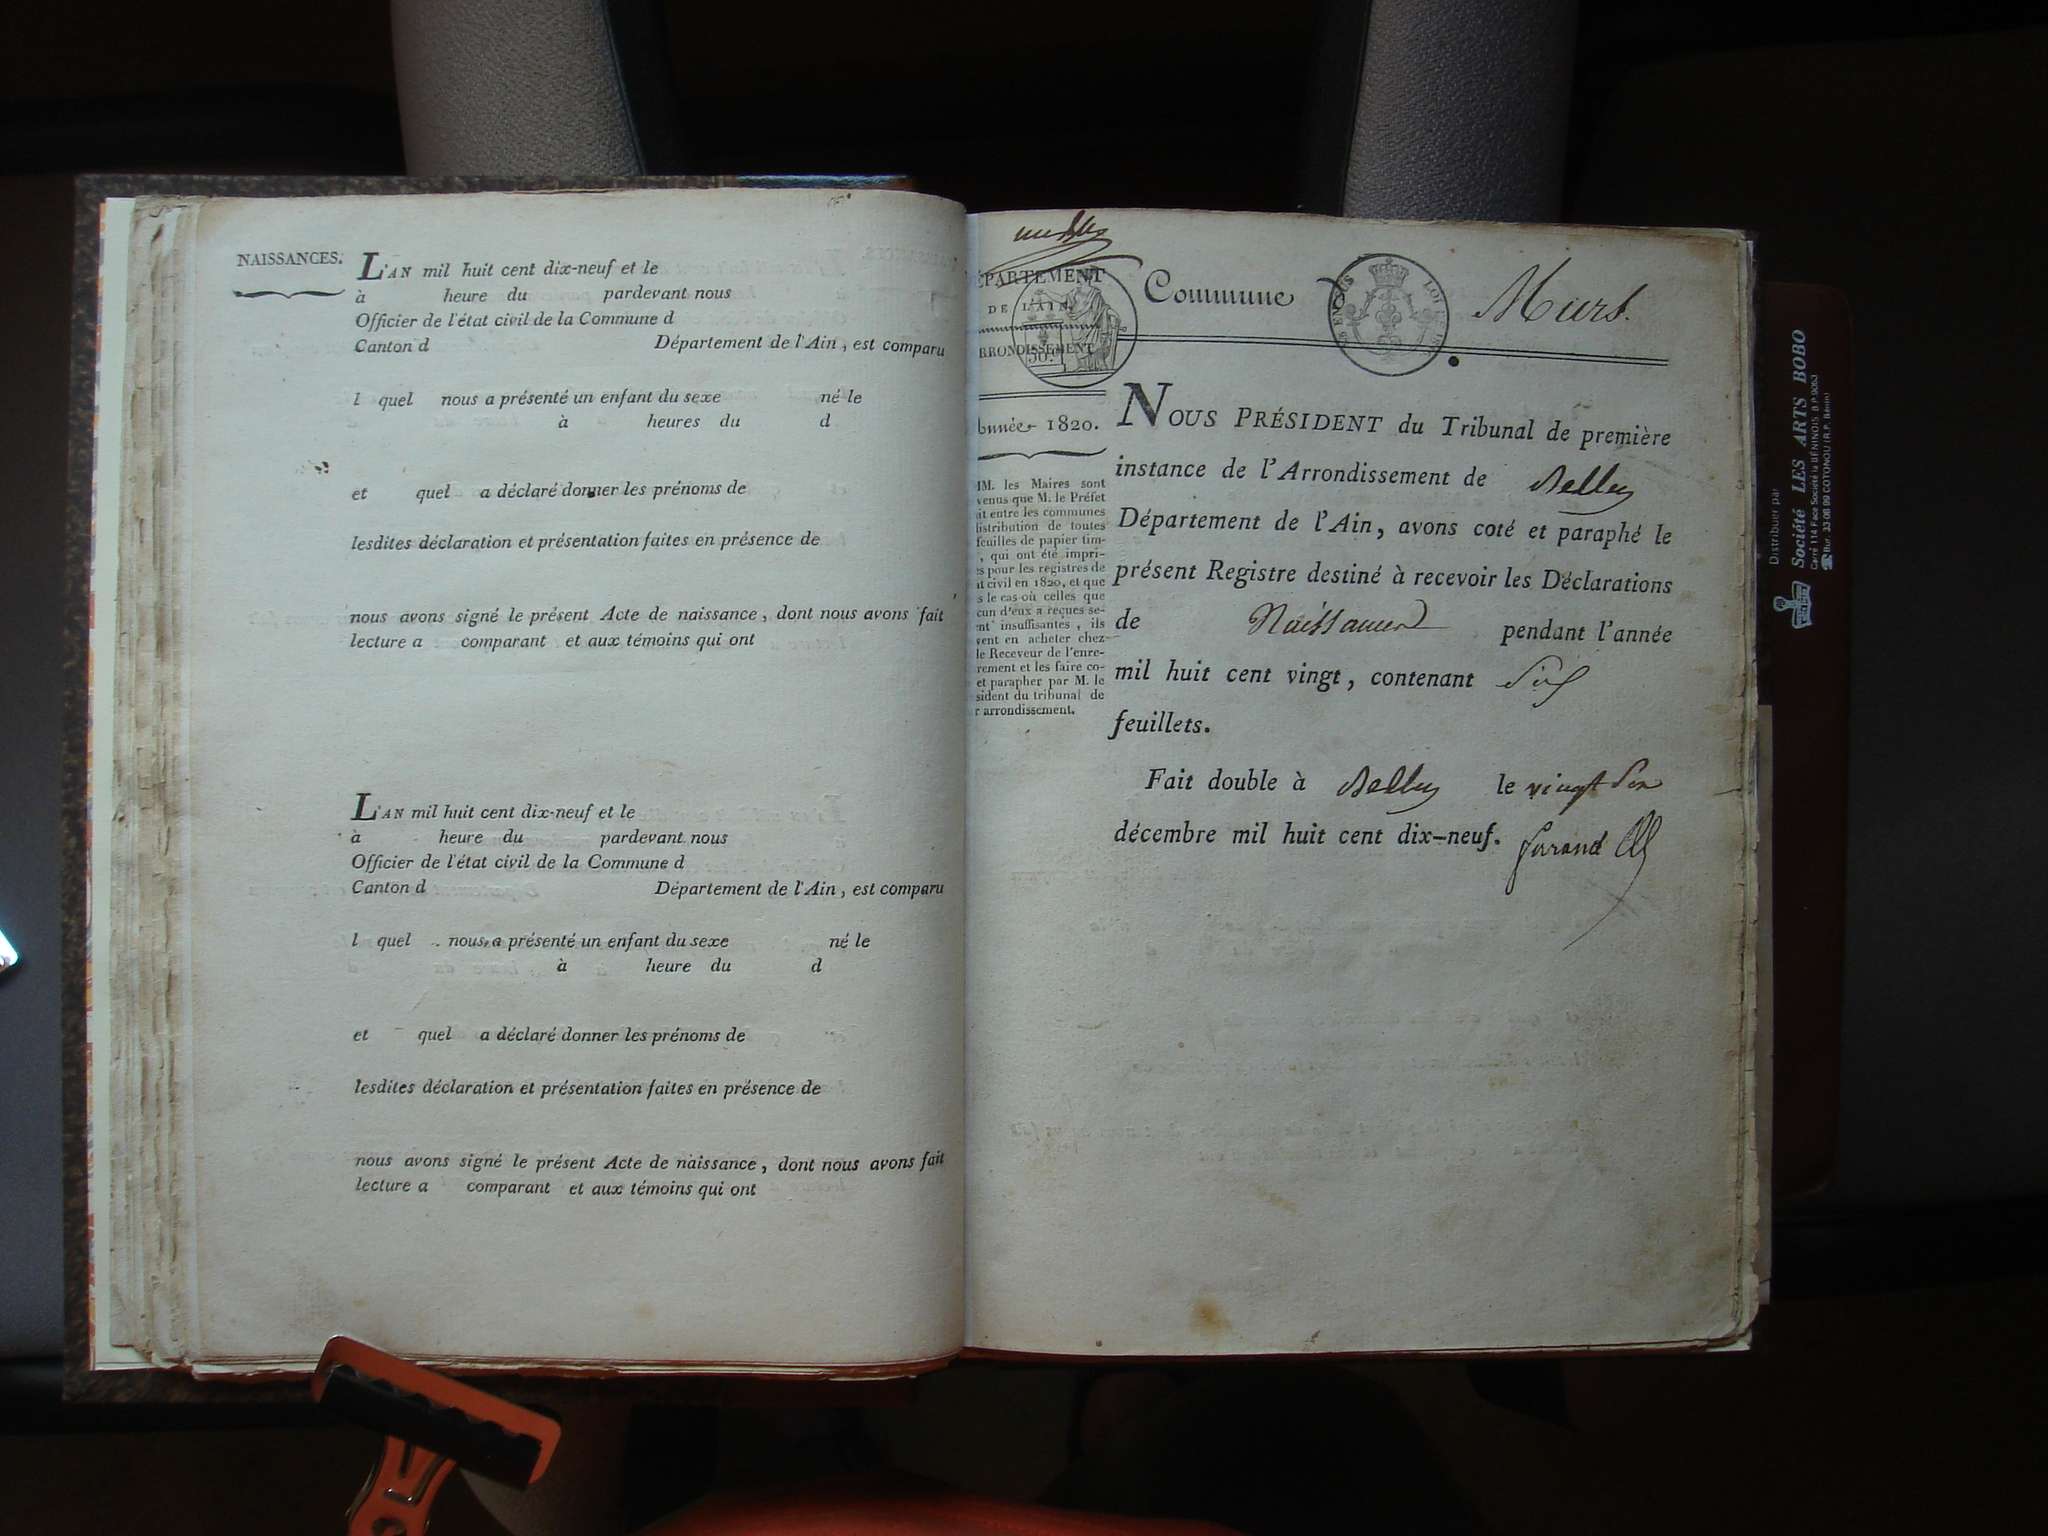 NAISSANCES.
L'AN mil huit cent dix-neuf et le
à heure du pardevant nous
Officier de l'état civil de la Commune d
Canton d Département de l'Ain, est comparu
l quel nous a présenté un enfant du sexe né le
à heures du d
et quel a déclaré donner les prénoms de
lesdites déclaration et présentation faites en présence de
nous avons signé le présent Acte de naissance, dont nous avons fait
lecture a comparant et aux témoins qui ont
L'AN mil huit cent dix-neuf et le
à heure du pardevant nous
Officier de l'état civil de la Commune d
Canton d Département de l'Ain, est comparu
l quel nous a présenté un enfant du sexe né le
à heure du d
et quel a déclaré donner les prénoms de
lesdites déclaration et présentation faites en présence de
nous avons signé le présent Acte de naissance, dont nous avons fait
lecture a comparant et aux témoins qui ont
ÉPARTEMENT
DE L'AIN
RRONDISSEMENT
50
Année 1820.
MM. les Maires sont
venus que M. le Préfet
ait entre les communes
distribution de toutes
feuilles de papier tim-
, qui ont été impri-
es pour les registres de
at civil en 1820, et que
s le cas où celles que
cun d'eux a reçues se-
nt insuffisantes, ils
vent en acheter chez
le Receveur de l'enre-
rement et les faire co-
et parapher par M. le
sident du tribunal de
r arrondissement.
Commune Murs.
NOUS PRÉSIDENT du Tribunal de première
instance de l'Arrondissement de Belley
Département de l'Ain, avons coté et paraphé le
présent Registre destiné à recevoir les Déclarations
de Naissances pendant l'année
mil huit cent vingt, contenant six
feuillets.
Fait double à Belley le vingt six
décembre mil huit cent dix-neuf.
Distribuer par
Société LES ARTS BOBO
Carré 114 Face Société la BÉNINOIS B.P 9063
Bur. 33-06 99 COTONOU (R.P. Bénin)